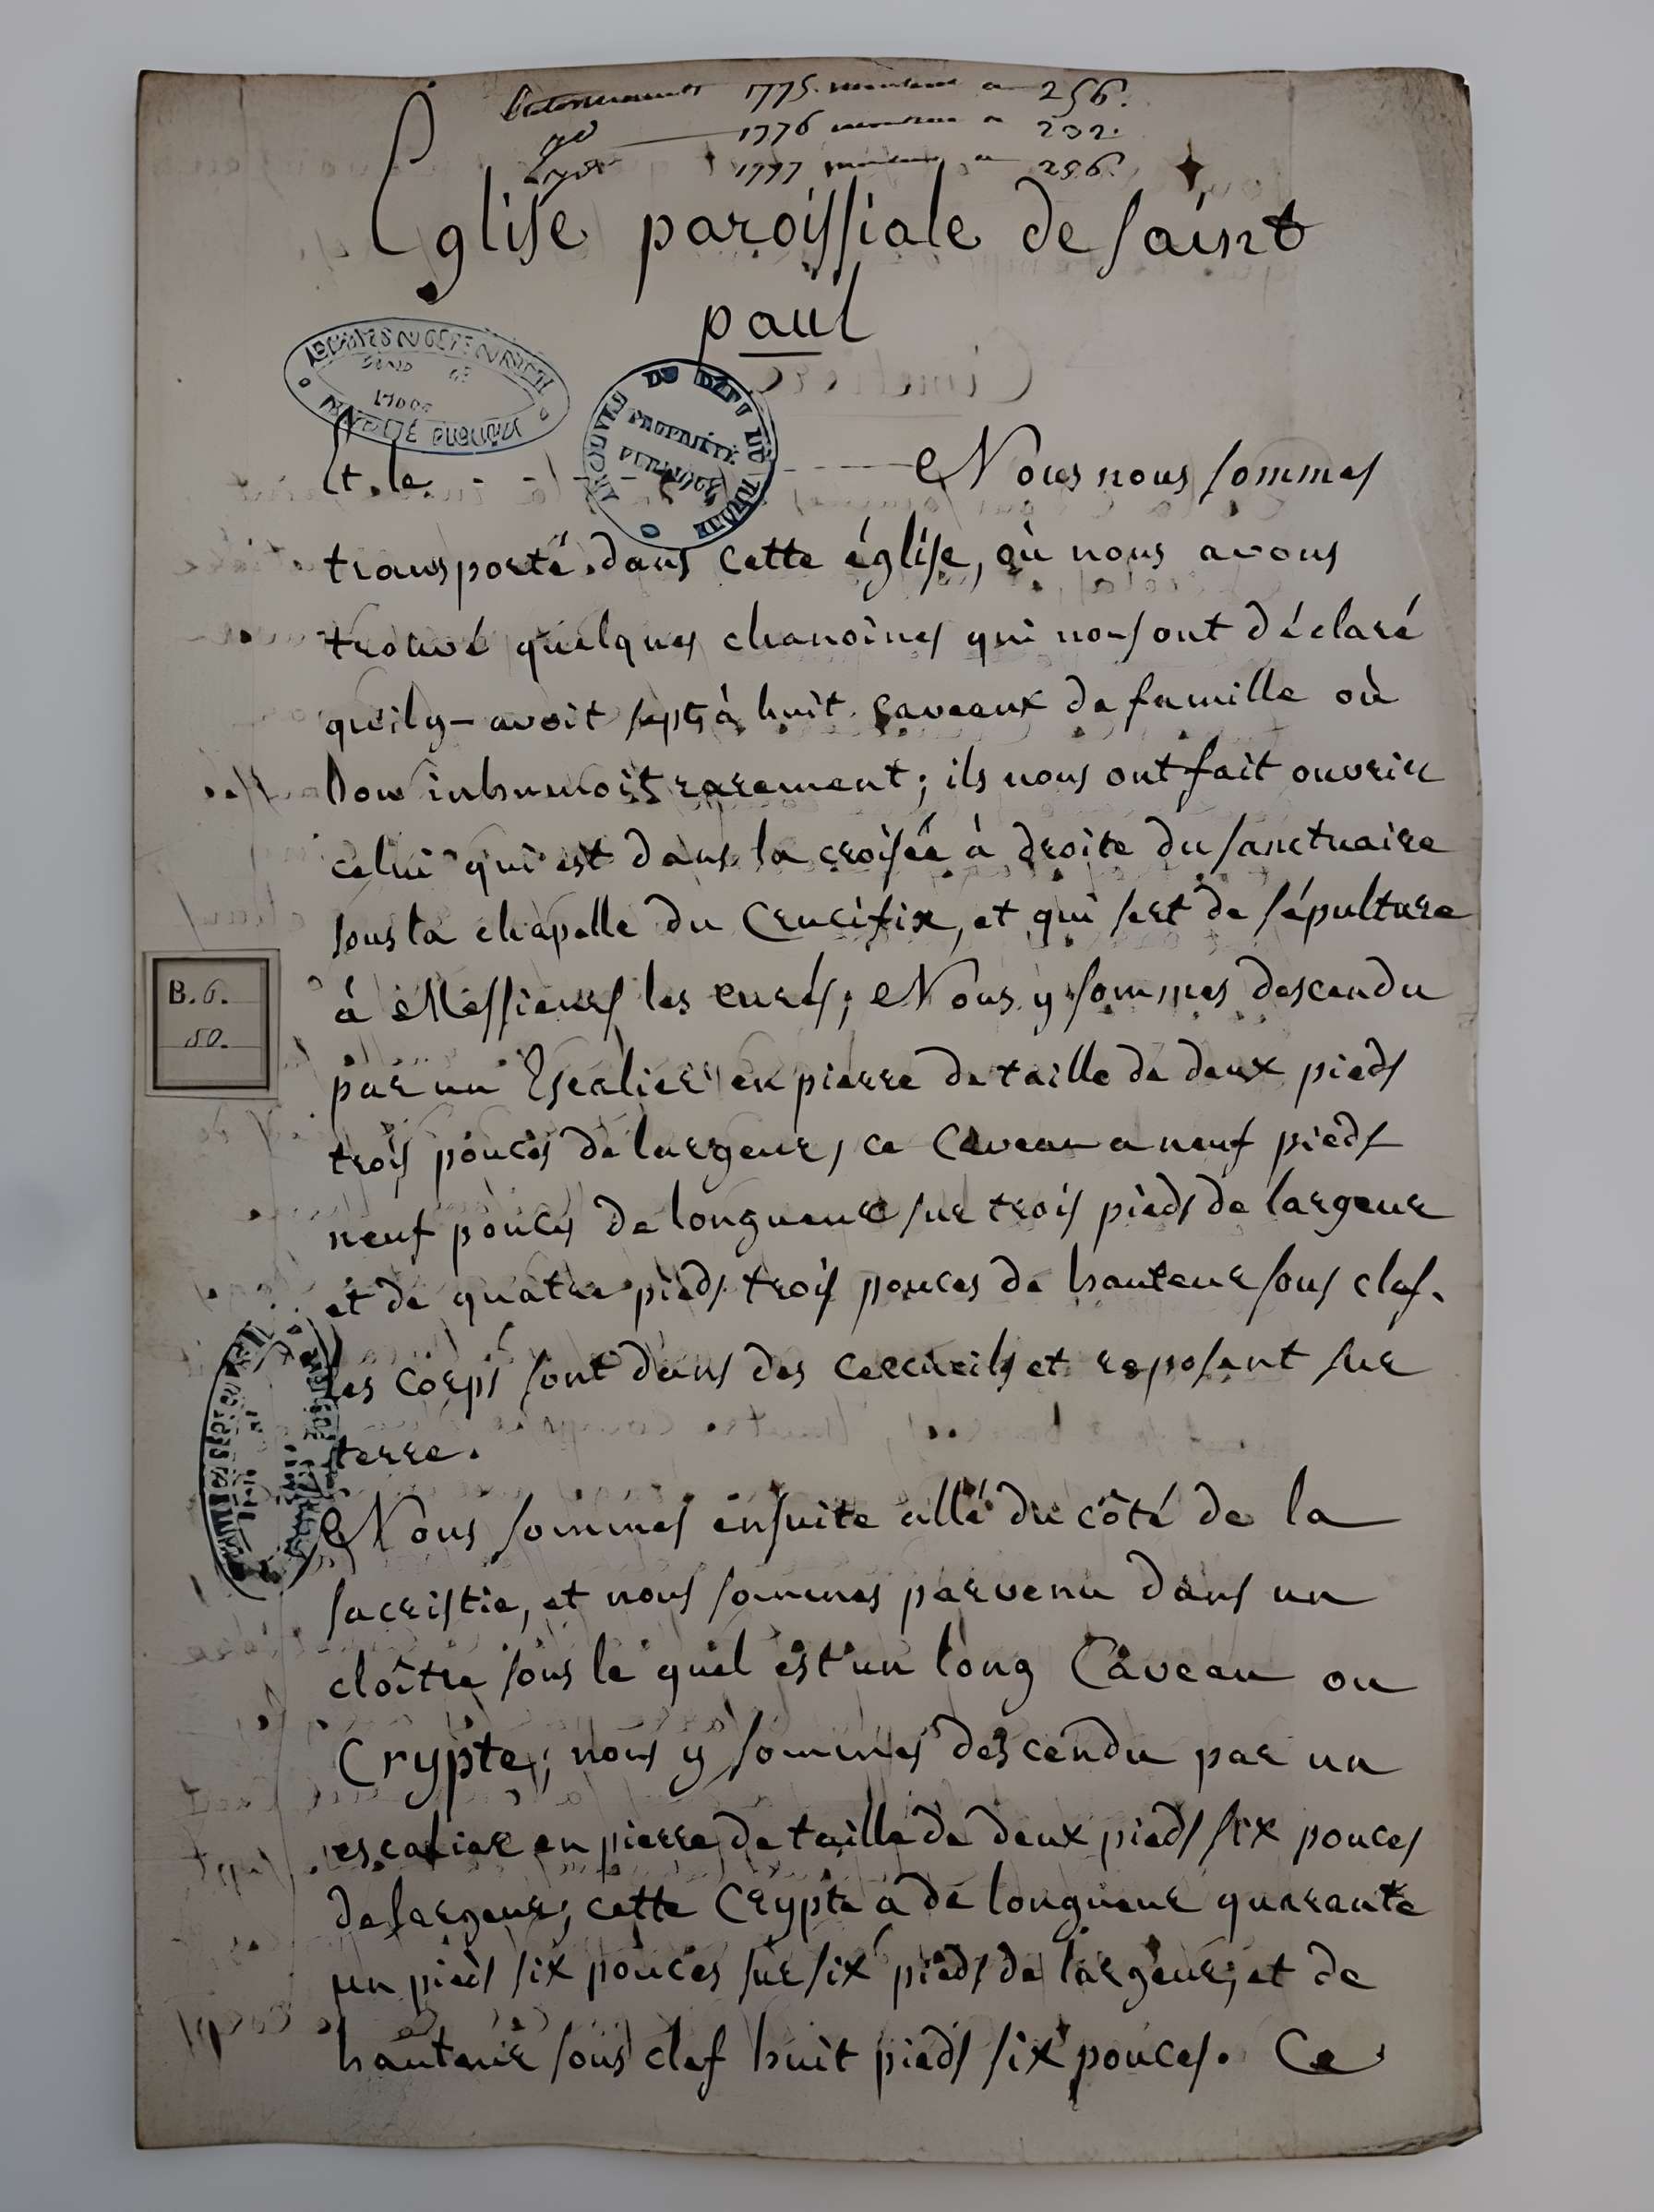 1775. montent a 256.
1776 montent a 232.
1777 montent a 256.
Eglise paroissiale de saint
paul
Et le - - - - - - Nous nous sommes
transporté dans cette église, où nous avons
trouvé quelques chanoines qui nous ont déclaré
qu'il y-avoit sept à huit caveaux de famille où
l'on inhumoit rarement; ils nous ont fait ouvrir
celui qui est dans la croisée à droite du sanctuaire
sous la chapelle du Crucifix, et qui sert de sépulture
à Messieurs les curés; Nous y sommes descendu
par un Escalier en pierre de taille de deux pieds
trois pouces de largeur, ce Caveau a neuf pieds
neuf pouces de longueur sur trois pieds de largeur
et de quatre pieds trois pouces de hauteur sous clef.
les corps sont dans des cercueils et reposent sur
terre.
Nous sommes ensuite allé du côté de la
sacristie, et nous sommes parvenu dans un
cloître sous le quel est un long Caveau ou
Crypte; nous y sommes descendu par un
escalier en pierre de taille de deux pieds six pouces
de largeur; cette Crypte a de longueur quarante
un pieds six pouces sur six pieds de largeur; et de
hauteur sous clef huit pieds six pouces. Ce
B. 6.
50.
PROPRIÉTÉ